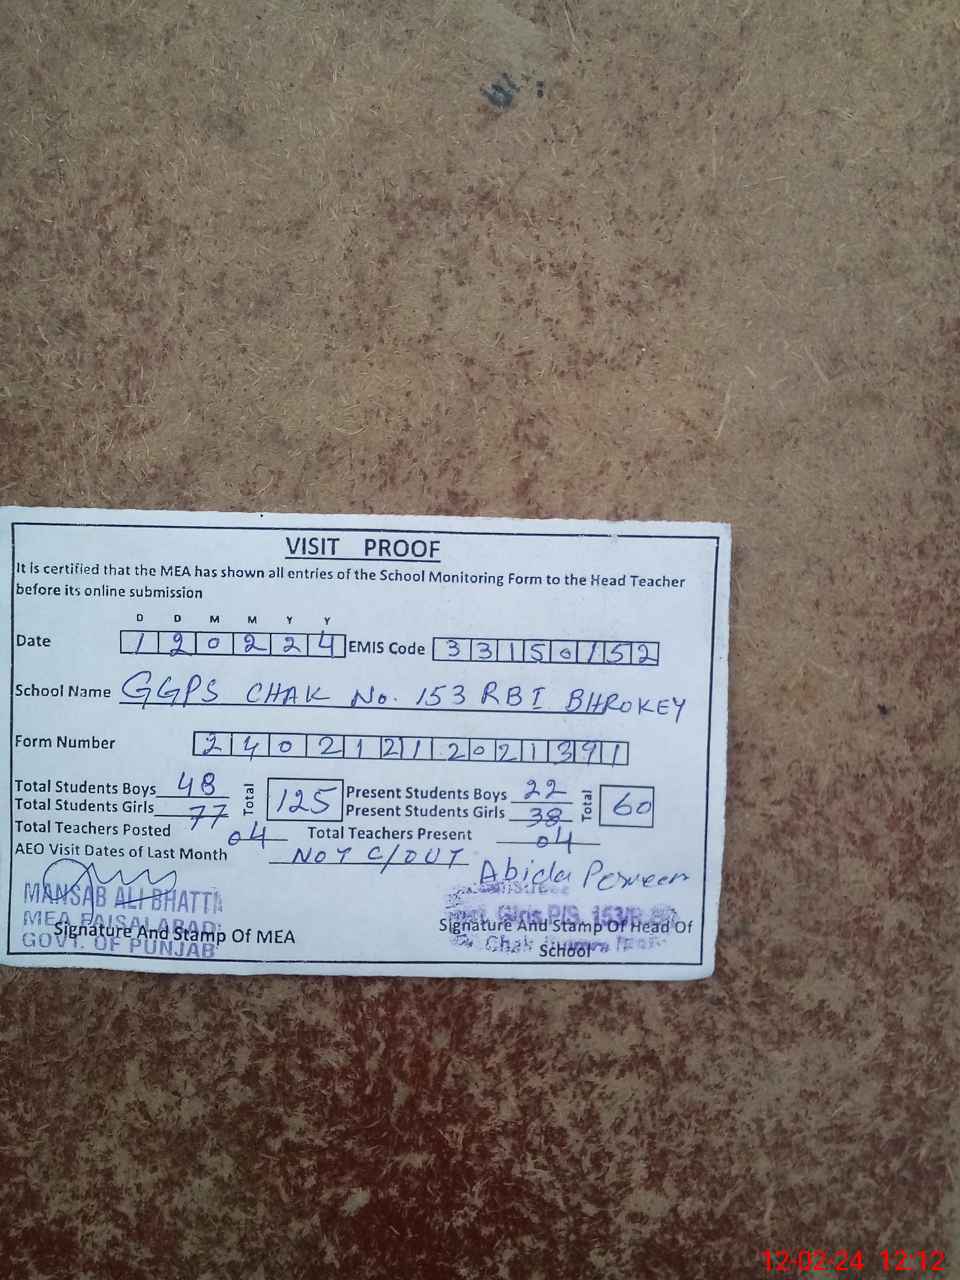 VISIT PROOF
It is certified that the MEA has shown all entries of the School Monitoring Form to the Head Teacher
before its online submission
D D M M Y Y
Date 120224 EMIS Code 33150152
School Name GGPS CHAK No. 153 RBI BHROKEY
Form Number 24021212021391
Total Students Boys 48 Total 125 Present Students Boys 22 Total 60
Total Students Girls 77 Present Students Girls 38
Total Teachers Posted 04 Total Teachers Present 04
AEO Visit Dates of Last Month NOT C/OUT
Abida Perveen
MANSAB ALI BHATTI
MEA FAISALABAD
GOVT. OF PUNJAB
Signature And Stamp Of MEA
Girls P/S. 153/R.B
Chak
Signature And Stamp Of Head Of
School
12-02-24 12:12